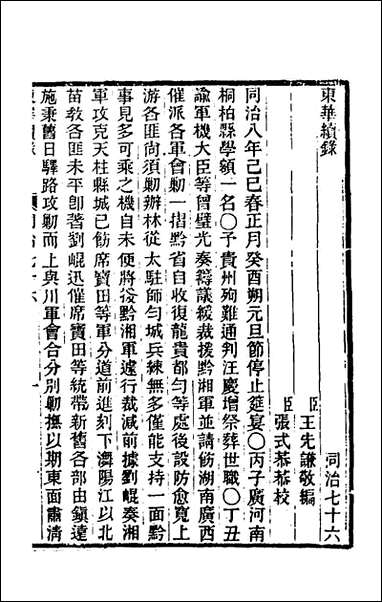 東華續錄
同治七十六
臣王先謙敬編
臣張式恭恭校
同治八年己巳春正月癸酉朔元旦節停止筵宴○丙子廣河南
桐柏縣學額一名○予貴州殉難通判汪慶增祭葬世職○丁丑
諭軍機大臣等曾璧光奏籌議緩裁援黔湘軍並請飭湖南廣西
催派各軍會勦一摺黔省自收復龍貴都勻等處後設防愈寬上
游各匪尚須勦辦林從太駐師勻城兵練無多僅能支持一面黔
事見多可乘之機自未便將後黔湘軍遽行裁減前據劉崐奏湘
軍攻克天柱縣城已飭席寶田等軍分道前進刻下㵲陽江以北
苗教各匪未平卽著劉崐迅催席寶田等統帶新舊各部由鎮遠
施秉舊日驛路攻勦而上與川軍會合分別勦撫以期東面肅清